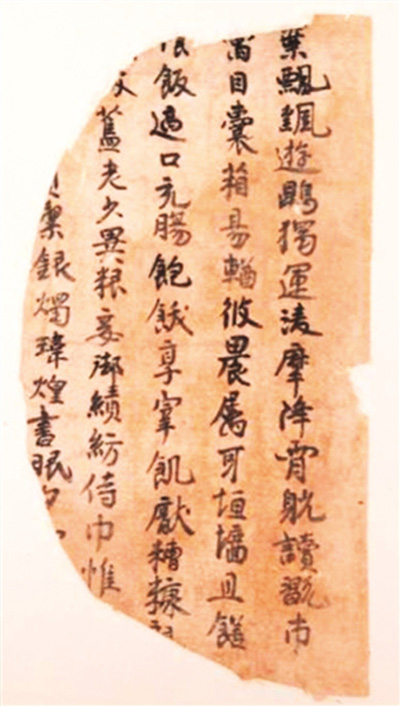 葉飄颻遊鵾獨運淩摩降霄躭讀翫市
寓目囊箱易輶攸畏屬耳垣墻且饍
飯適口充腸飽飫享宰飢猒糟糠
舊老少異粮妾御績紡侍巾帷
潔銀燭瑋煌晝眠夕